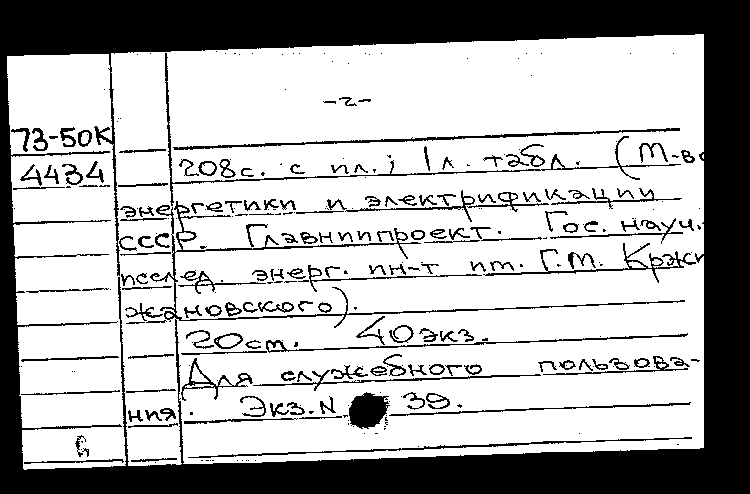 -2-
73-50К
4434
208с. с ил.; 1л. табл. (М-во
энергетики и электрификации
СССР. Главниипроект. Гос. науч.-
исслед. энерг. ин-т им. Г.М. Кржи
жановского).
20см. 40экз.
Для служебного пользова-
ния. Экз.N 39.